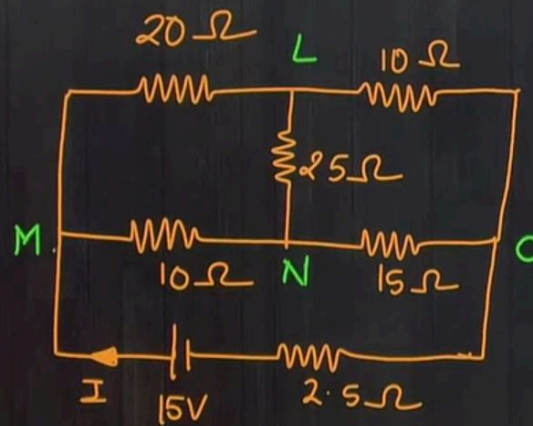 20 Ω
L
10 Ω
25 Ω
M
10 Ω
N
15 Ω
O
I
15V
2.5 Ω